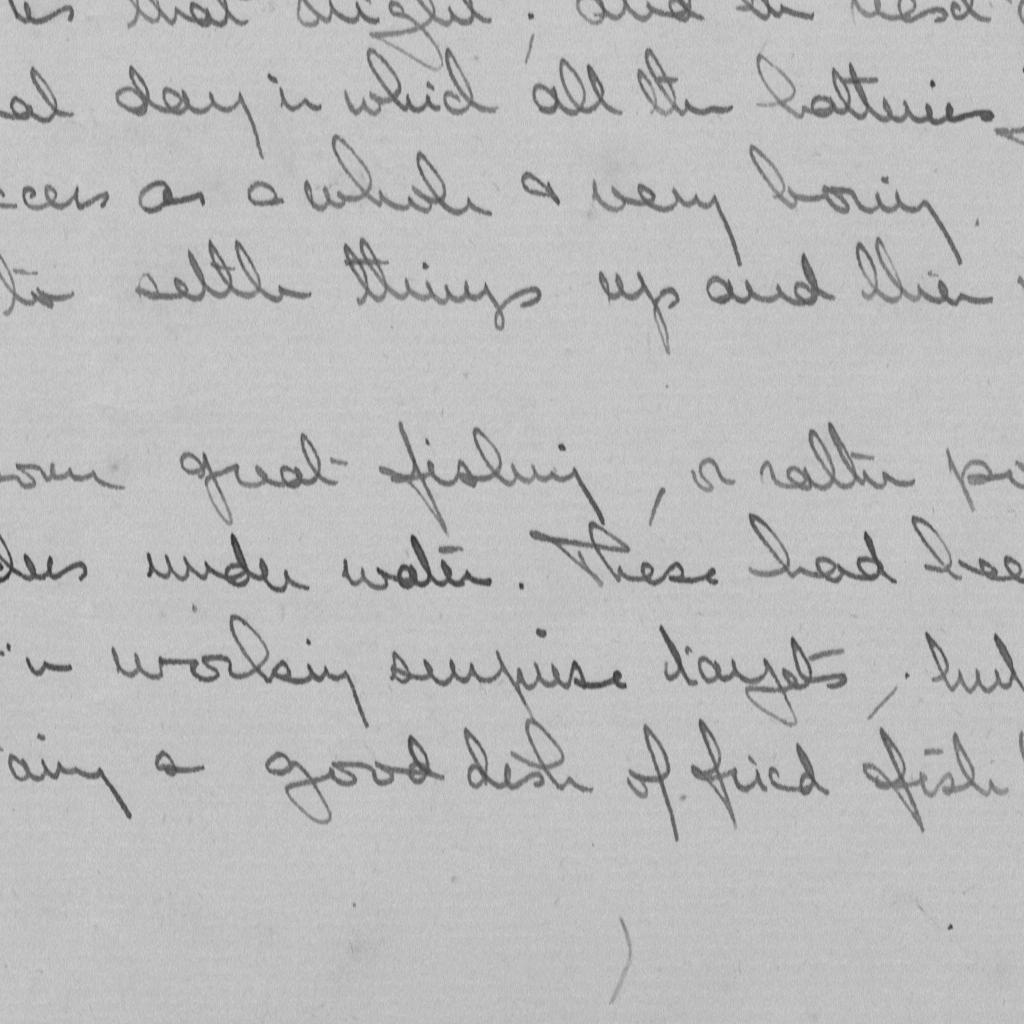 that night, and the next
day in which all the batteries
as a whole & very boring.
to settle things up and then
some great fishing, or rather
under water. These had bee
in working surprise targets, but
a good dish of fried fish